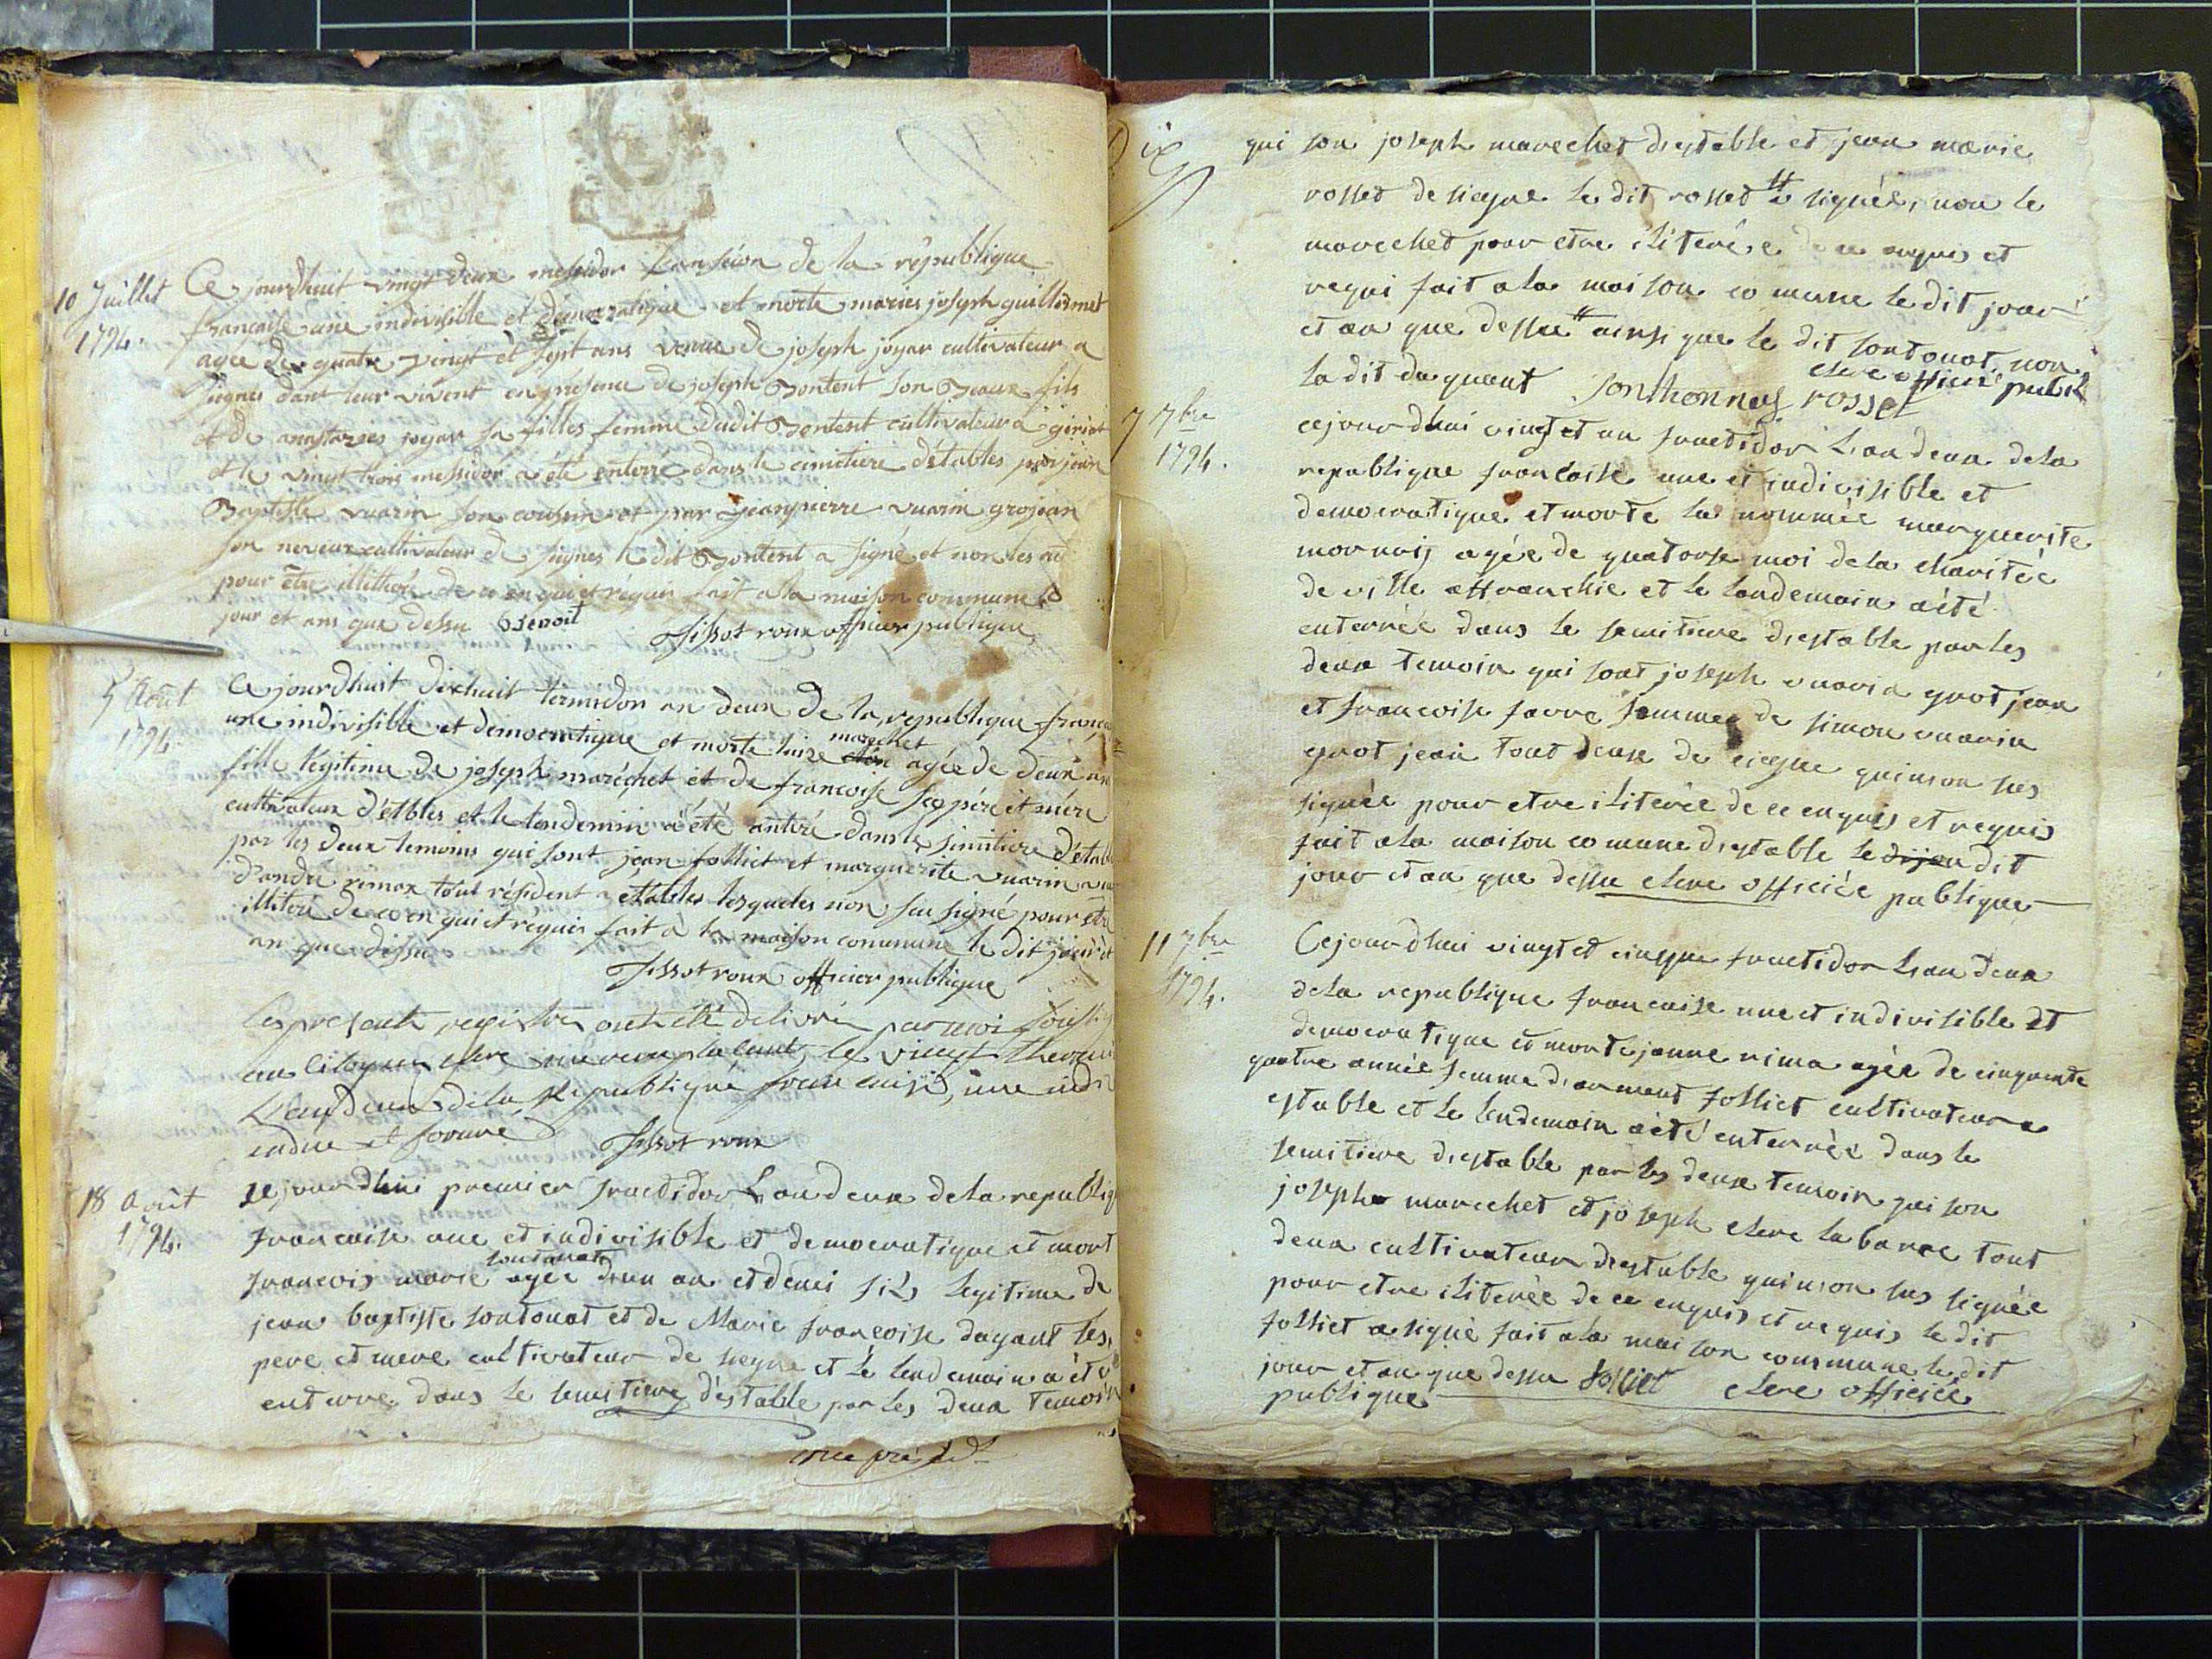 10 Juillet
1794.
Ce jourdhuit vingt deux messidor de la république
française une indivisible et démocratique et morte maries joseph guillermet
agée de quatre vingt et sept ans venue de joseph joyar cultivateur a
signes dant leur vivent en présence de joseph Bontent son Beaux fils
et de anastazies joyar sa filles femme dudit Bontent cultivateur a giriat
et le vingt trois messidor a été enterré dans le cimitiere d'étables par jean
Baptiste vuarin son cousin et par jeanpierre vuarin grojean
son neveux cultivateur de signes le dit Bontent a signé et non les
pour être illitéré de ce enqui et réquis fait a la maison commune le
jour et ans que dessu Benoit
Jissot roux officier publique
5 Août
1794
Ce jourdhuit dixhuit termidor an deux de la republique
une indivisible et démocratique et morte luize marechet agée de deux ans
fille légitime de joseph maréchet et de francoise ses pére et mére
cultivateur d'étbles et le lendemin a été antéré dans le simitiere
par les deux temoins qui sont jean folliet et marguerite vuarin
d'andré rimax tout résident a étables lesqueles non su signé pour etre
illitéré de ce en qui et réquis fait a la maison commune le dit jour et
an que dessu
Jissot roux officier publique
Les presents registres ont été delivré par moi
au citoyen clere mon remplacant le vingt
L'an deux de la Republique francaise, une
Jissot roux
18 Août
1794.
Cejourdhui premier fructidor L'an deux dela
francaise une et indivisible et democratique et mort
francois marie sontonat agée d'un an et demi fils legitime de
jean baptiste sontonat et de Marie francoise dagant ses
pere et mere cultivateur de siegne et le lendemain a été
enterre dans le semitiere d'estable par les deux temoin
qui son joseph marechet d'estable et jean marie
rosset de siegne le dit rosset # a signée, non le
marechet pour etre iliterée de ce enquis et
requi fait ala maison comune le dit jour
et an que dessu # ainsi que le dit sontonat non
la dit daguant Sonthonnas rosset
clere officié public
7 7bre
1794.
cejourdhui vingt et un fructidor L'an deux dela
republique francaise une et indivisible et
democratique et morte la nommée marguerite
mornaij agée de quatorse moi dela charitée
de ville affranchie et le landemain a été
enterrée dans le semitiere d'estable par les
deux temoin qui sont joseph vuarin grot jean
et francoise favre femme de simon vuarin
grot jean tout deux de siegne qui non sus
signée pour etre iliterée de ce enquis et requis
fait ala maison comune d'estable le dit
jour et an que dessu clere officiée publique
11 7bre
1794.
Cejourdhui vingt et cinque fructidor L'an deux
dela republique francaise une et indivisible et
democratique et morte janne rima agée de cinquante
quatre année femme d'armant folliet cultivateur a
estable et le lendemain a été enterrée dans le
semitiere d'estable par les deux temoin qui son
joseph marechet et joseph clere labarre tout
deux cultivateur d'estable qui non sus signée
pour etre iliterée de ce enquis et requis le dit
folliet a signé fait ala maison commune le dit
jour et an que dessu folliet clere officiée
publique